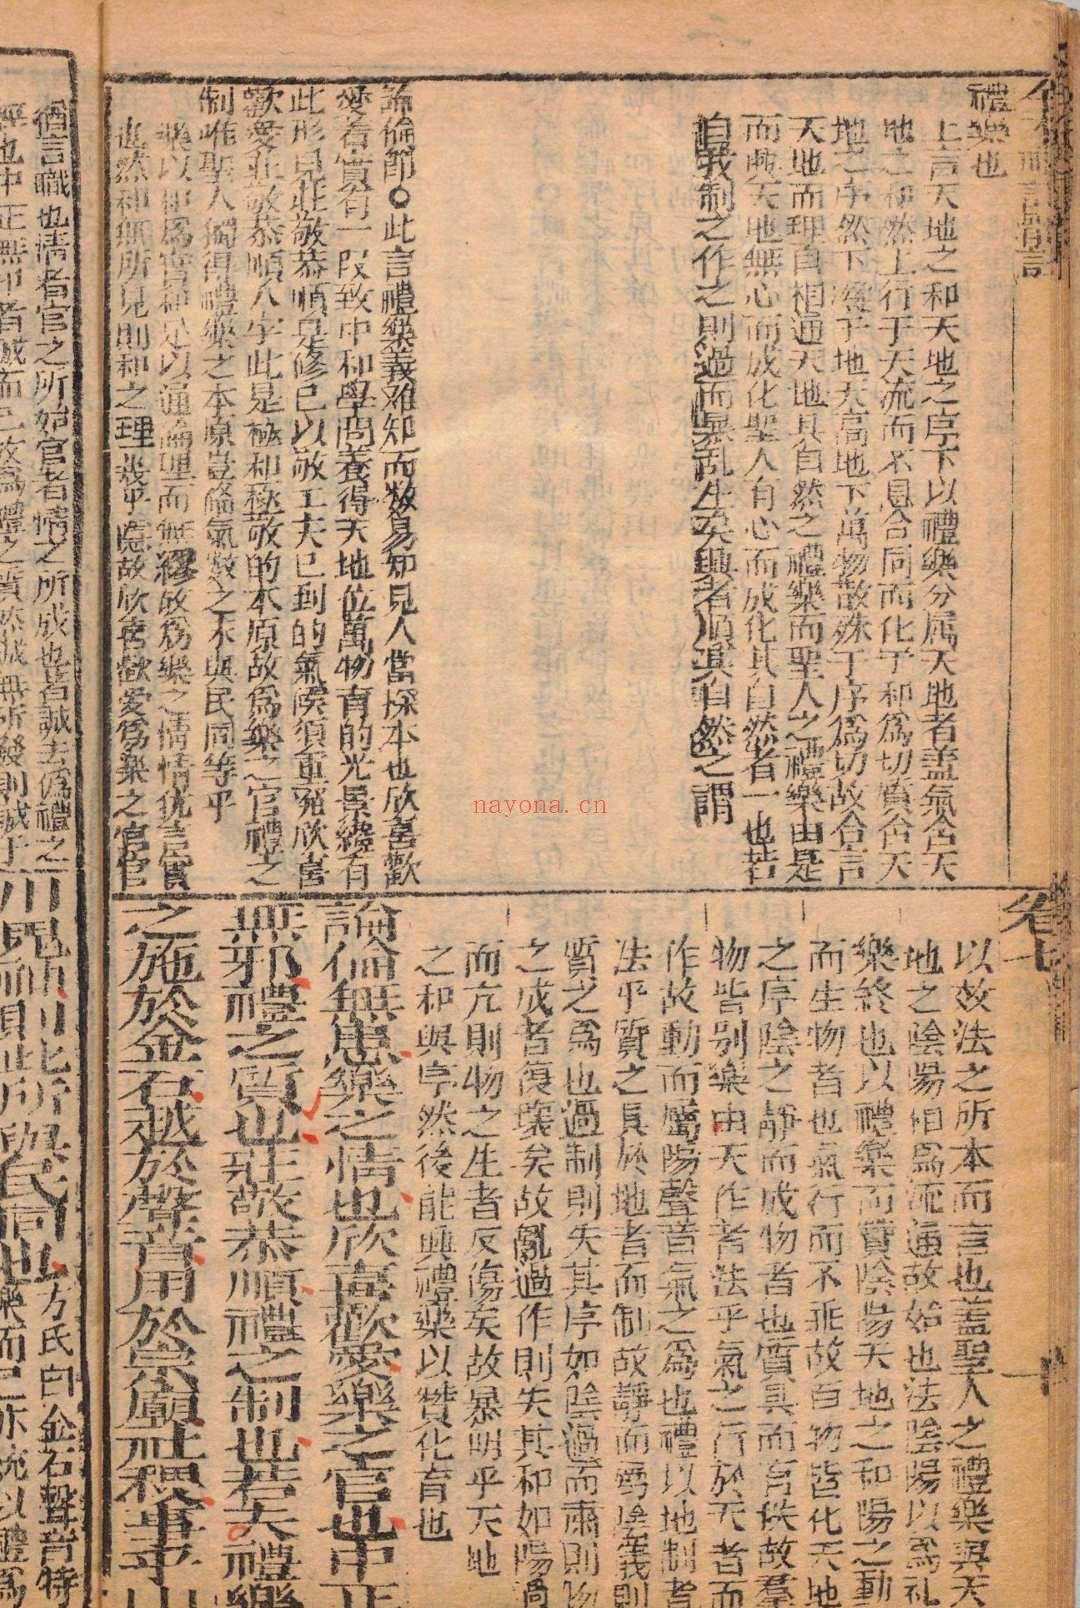 禮樂也
上言天地之和天地之序下以禮樂分属天地者盖氣合天
地之和然上行于天流而不息合同而化于和爲切質合天
地之序然下濟于地天高地下萬物散殊于序爲切故合言
天地而理自相通天地具自然之禮樂而聖人之禮樂由是
而興天地無心而成化聖人有心而成化其自然者一也若
自我制之作之則過而暴乱生矣興者順其自然之謂
論倫節○此言禮樂義难知而数易知見人當探本也欣喜歡
愛着實有一段致中和學問養得天地位萬物育的光景纔有
此形見莊敬恭順是修已以敬工夫已到的氣候須重發欣喜
歡愛莊敬恭順八字此是極和極敬的本原故爲樂之官禮之
制唯聖人獨得禮樂之本原豈徧氣数之不與民同等乎
樂以和爲官和足以通倫理而無繆故爲樂之情情犹言實
也然和無所見則和之理幾乎隐故欣喜歡爱爲樂之官官
猶言職也情者官之所始官者情之所成也著誠去偽禮之
經也中正無邪者誠而已故爲禮之質然誠無所發則誠于
卷七
以效法之所本而言也盖聖人之禮樂與天
地之陰陽相爲流通故始也法陰陽以爲礼
樂終也以禮樂而贊陰陽天地之和陽之動
而生物者也氣行而不乖故百物皆化天地
之序陰之静而成物者也質具而有秩故羣
物皆别樂由天作者法乎氣之行於天者而
作故動而屬陽聲音氣之爲也禮以地制者
法乎質之具於地者而制故静而属陰義則
質之爲也過制則失其序如陰過而肅則物
之成者復壞矣故亂過作則失其和如陽過
而亢則物之生者反傷矣故暴明乎天地
之和與序然後能興禮樂以贊化育也
論倫無患樂之情也欣喜歡愛樂之官也中正
無邪禮之質也莊敬恭順禮之制也若夫禮樂
之施於金石越於聲音用於宗廟社稷事乎山
川鬼神則此所與民同也方氏曰金石聲音特
樂而已亦統以禮爲